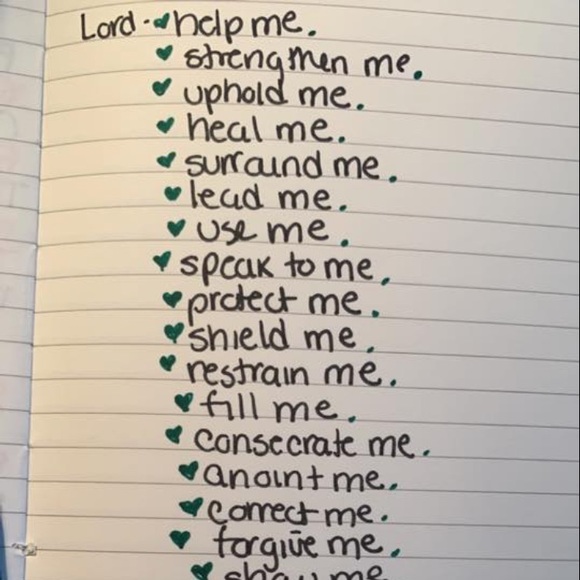 Lord - help me.
strengthen me.
uphold me.
heal me.
surround me.
lead me.
use me.
speak to me.
protect me.
shield me.
restrain me.
fill me.
consecrate me.
anoint me.
correct me.
forgive me.
me